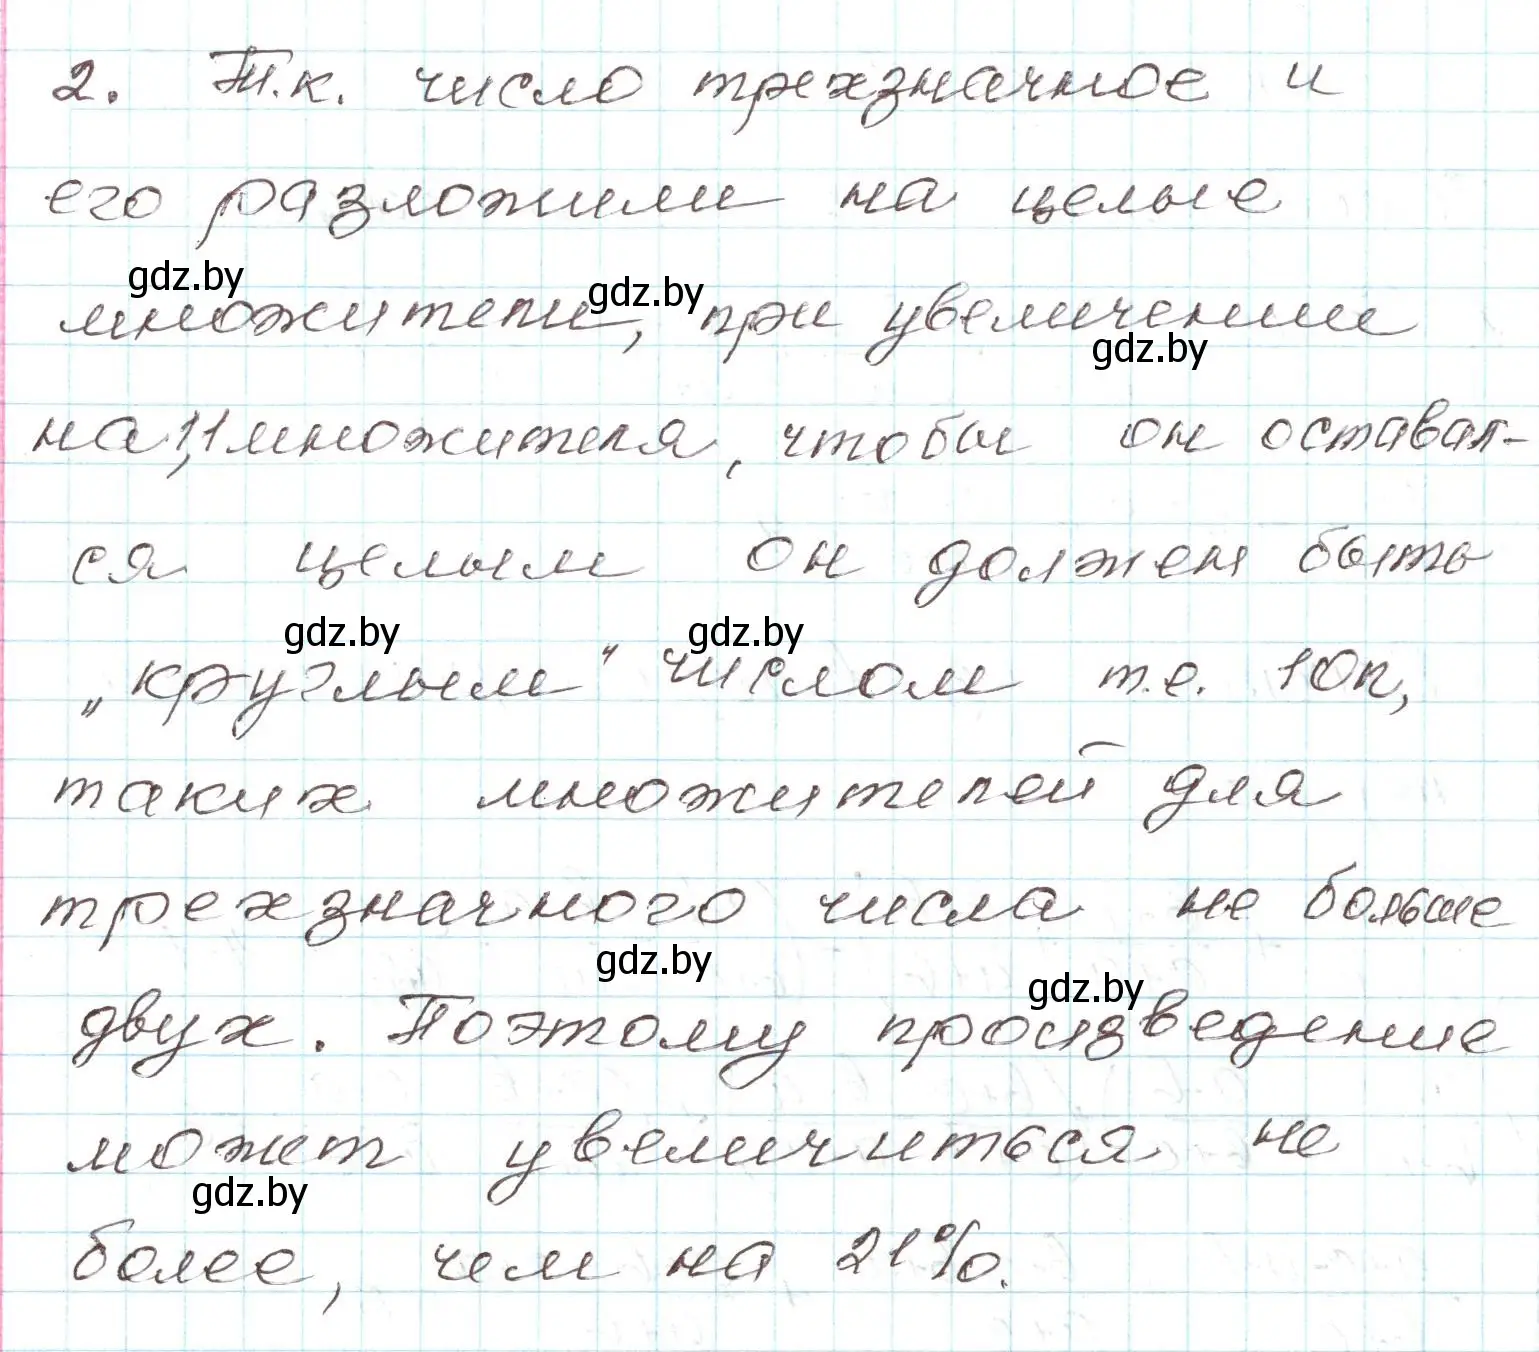 2. Т.к. число трехзначное и
его разложили на целые
gdz.by
множители, при увеличении
gdz.by
gdz.by
на 1,1 множителя, чтобы он оставал-
ся целым он должен быть
gdz.by gdz.by
„круглым“ числом т.е. 10n,
таких множителей для
трехзначного числа не больше
gdz.by
gdz.by
двух. Поэтому произведение
может увеличиться не
gdz.by
более, чем на 21%.